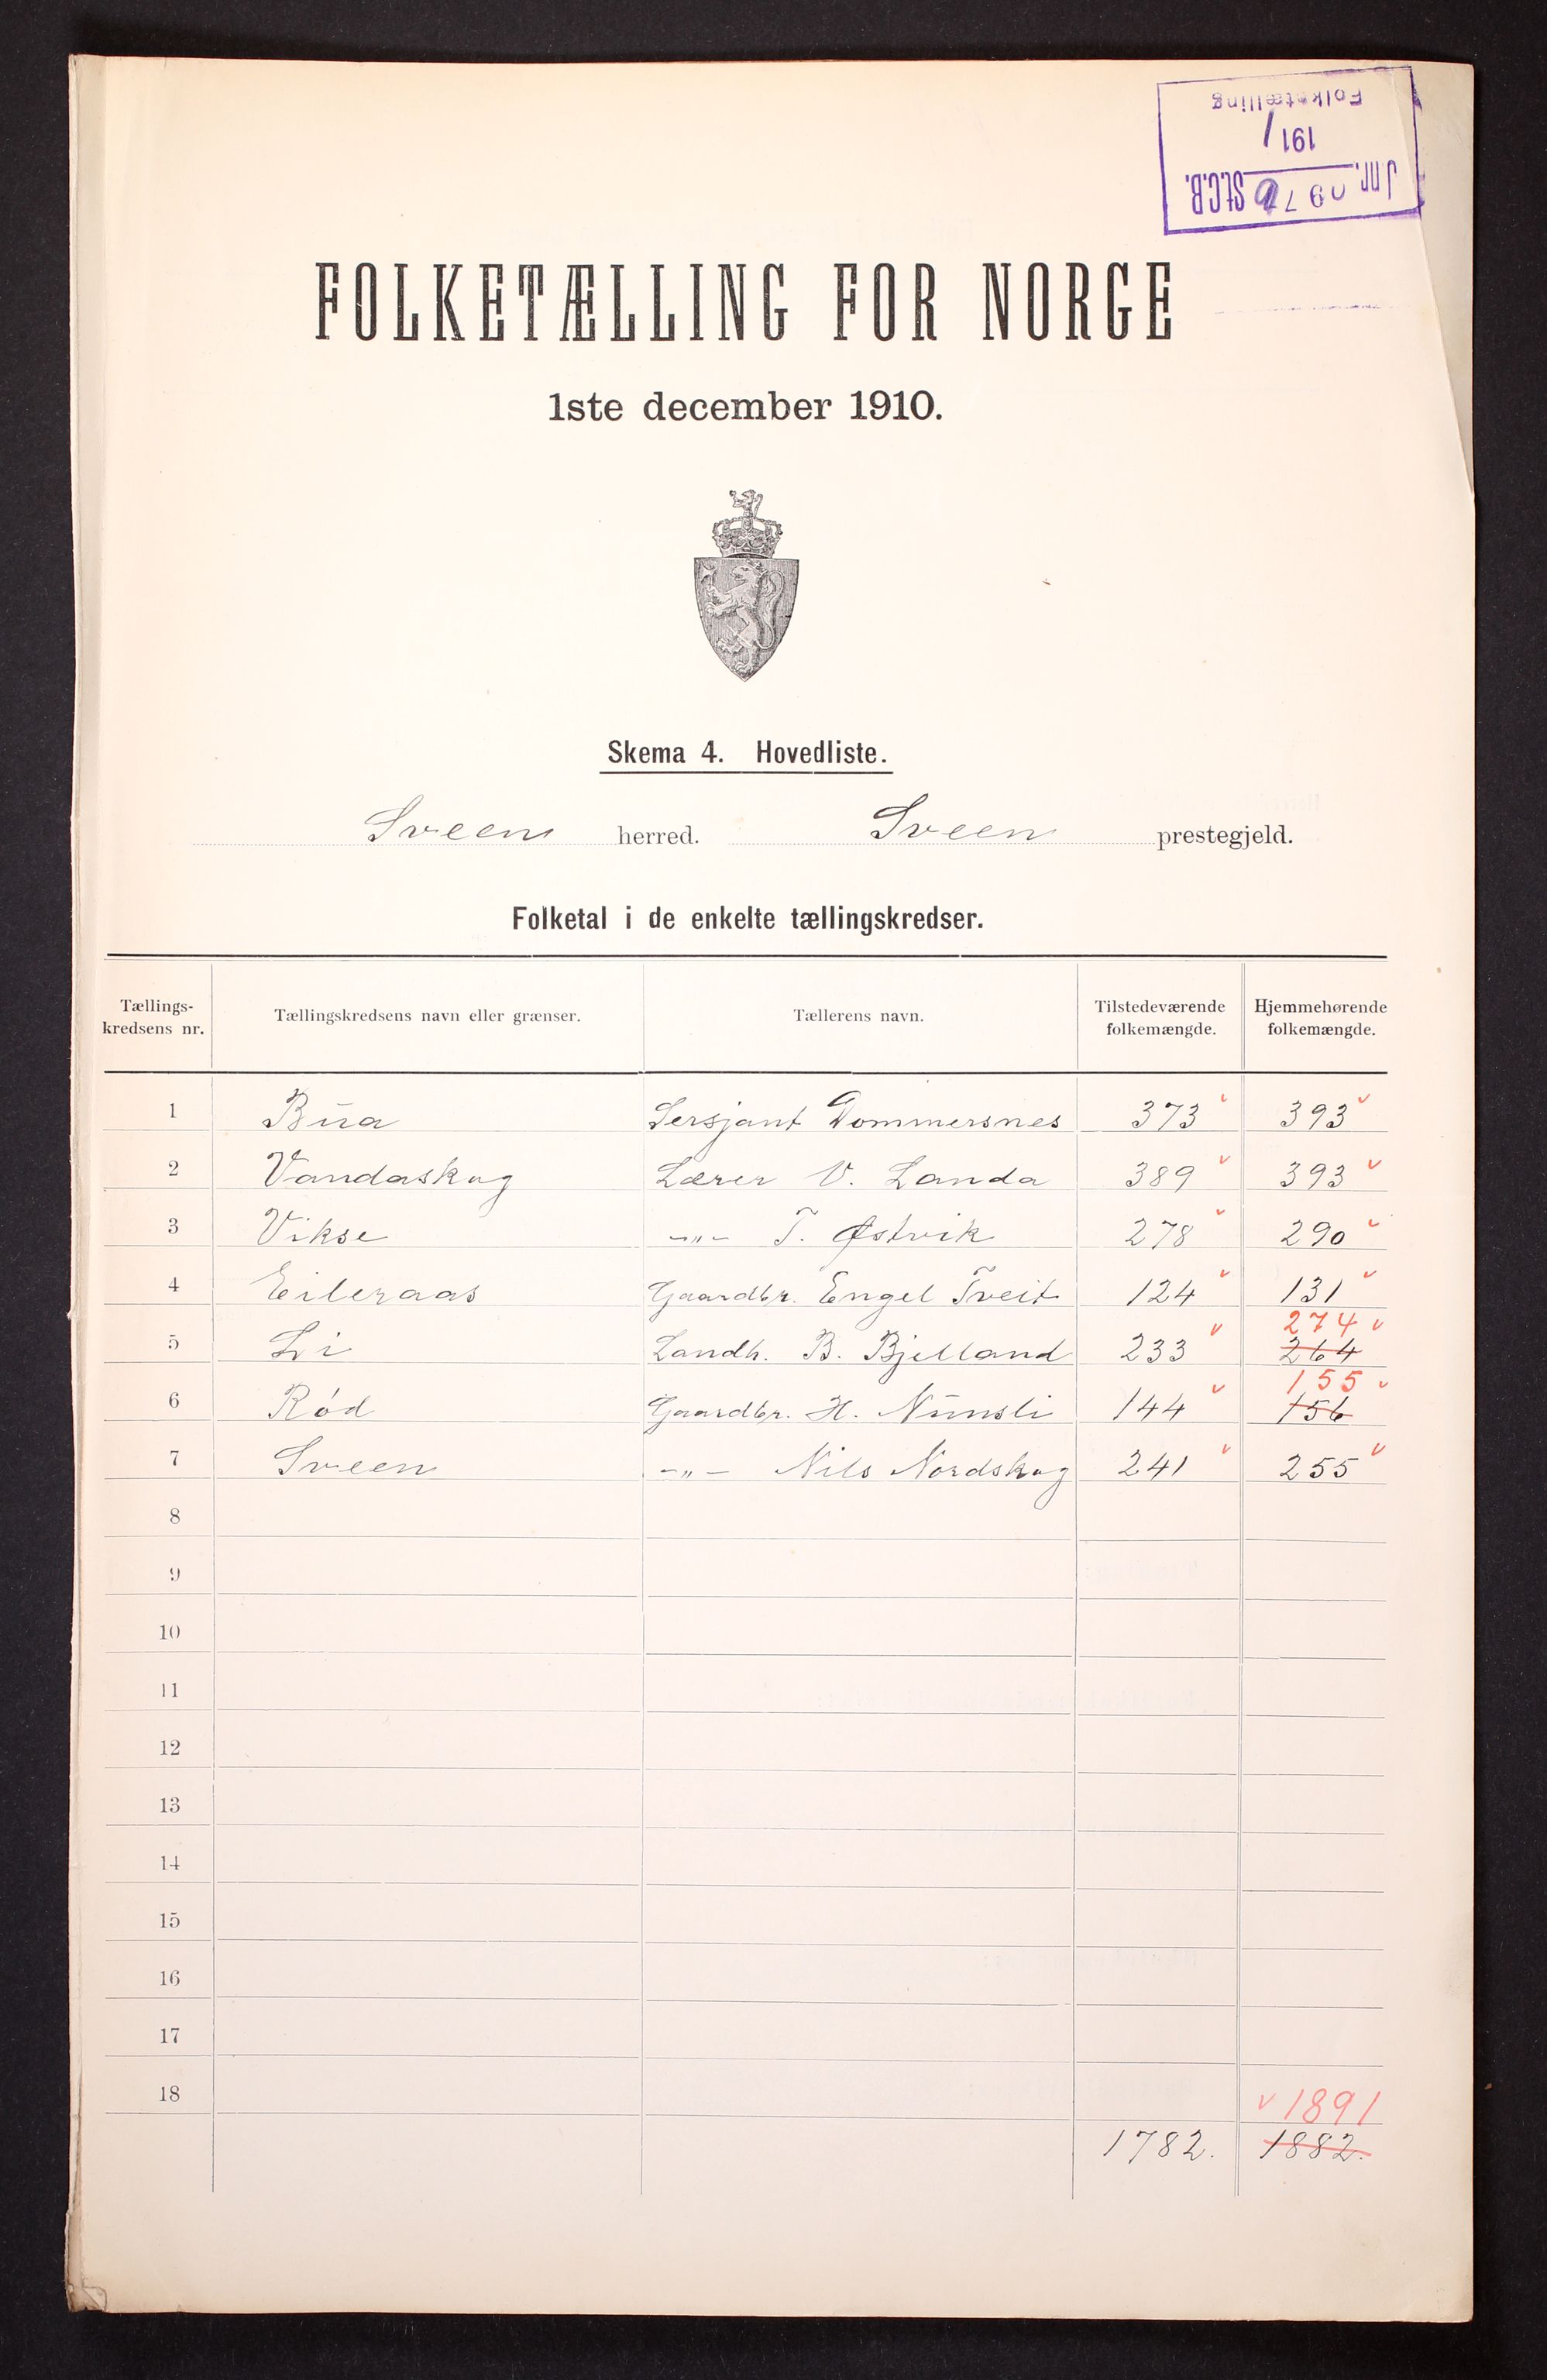 Folketælling
1911
Jnr. St.C.B.
FOLKETÆLLING FOR NORGE
1ste december 1910.
Skema 4. Hovedliste.
Sveen herred. Sveen prestegjeld.
Folketal i de enkelte tællingskredser.
Tællings-kredsens nr. Tællingskredsens navn eller grænser. Tællerens navn. Tilstedeværende folkemængde. Hjemmehørende folkemængde.
1 Bua Sersjant Dommersnes 373 393
2 Vandaskog Lærer V. Landa 389 393
3 Vikse -"- T. Østvik 278 290
4 Eileraas Gaardbr. Engel Tveit 124 131
274
5 Li Landh. B. Bjelland 233 264
155
6 Rød Gaardbr. H. Nunsli 144 156
7 Sveen -"- Nils Nordskog 241 255
8
9
10
11
12
13
14
15
16
17
18
1891
1782. 1882.